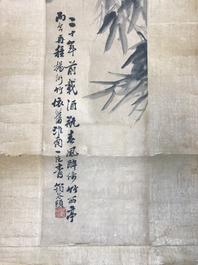 二十年前載酒瓶春風醉倚竹西亭
而今再種揚州竹依舊淮南一片青